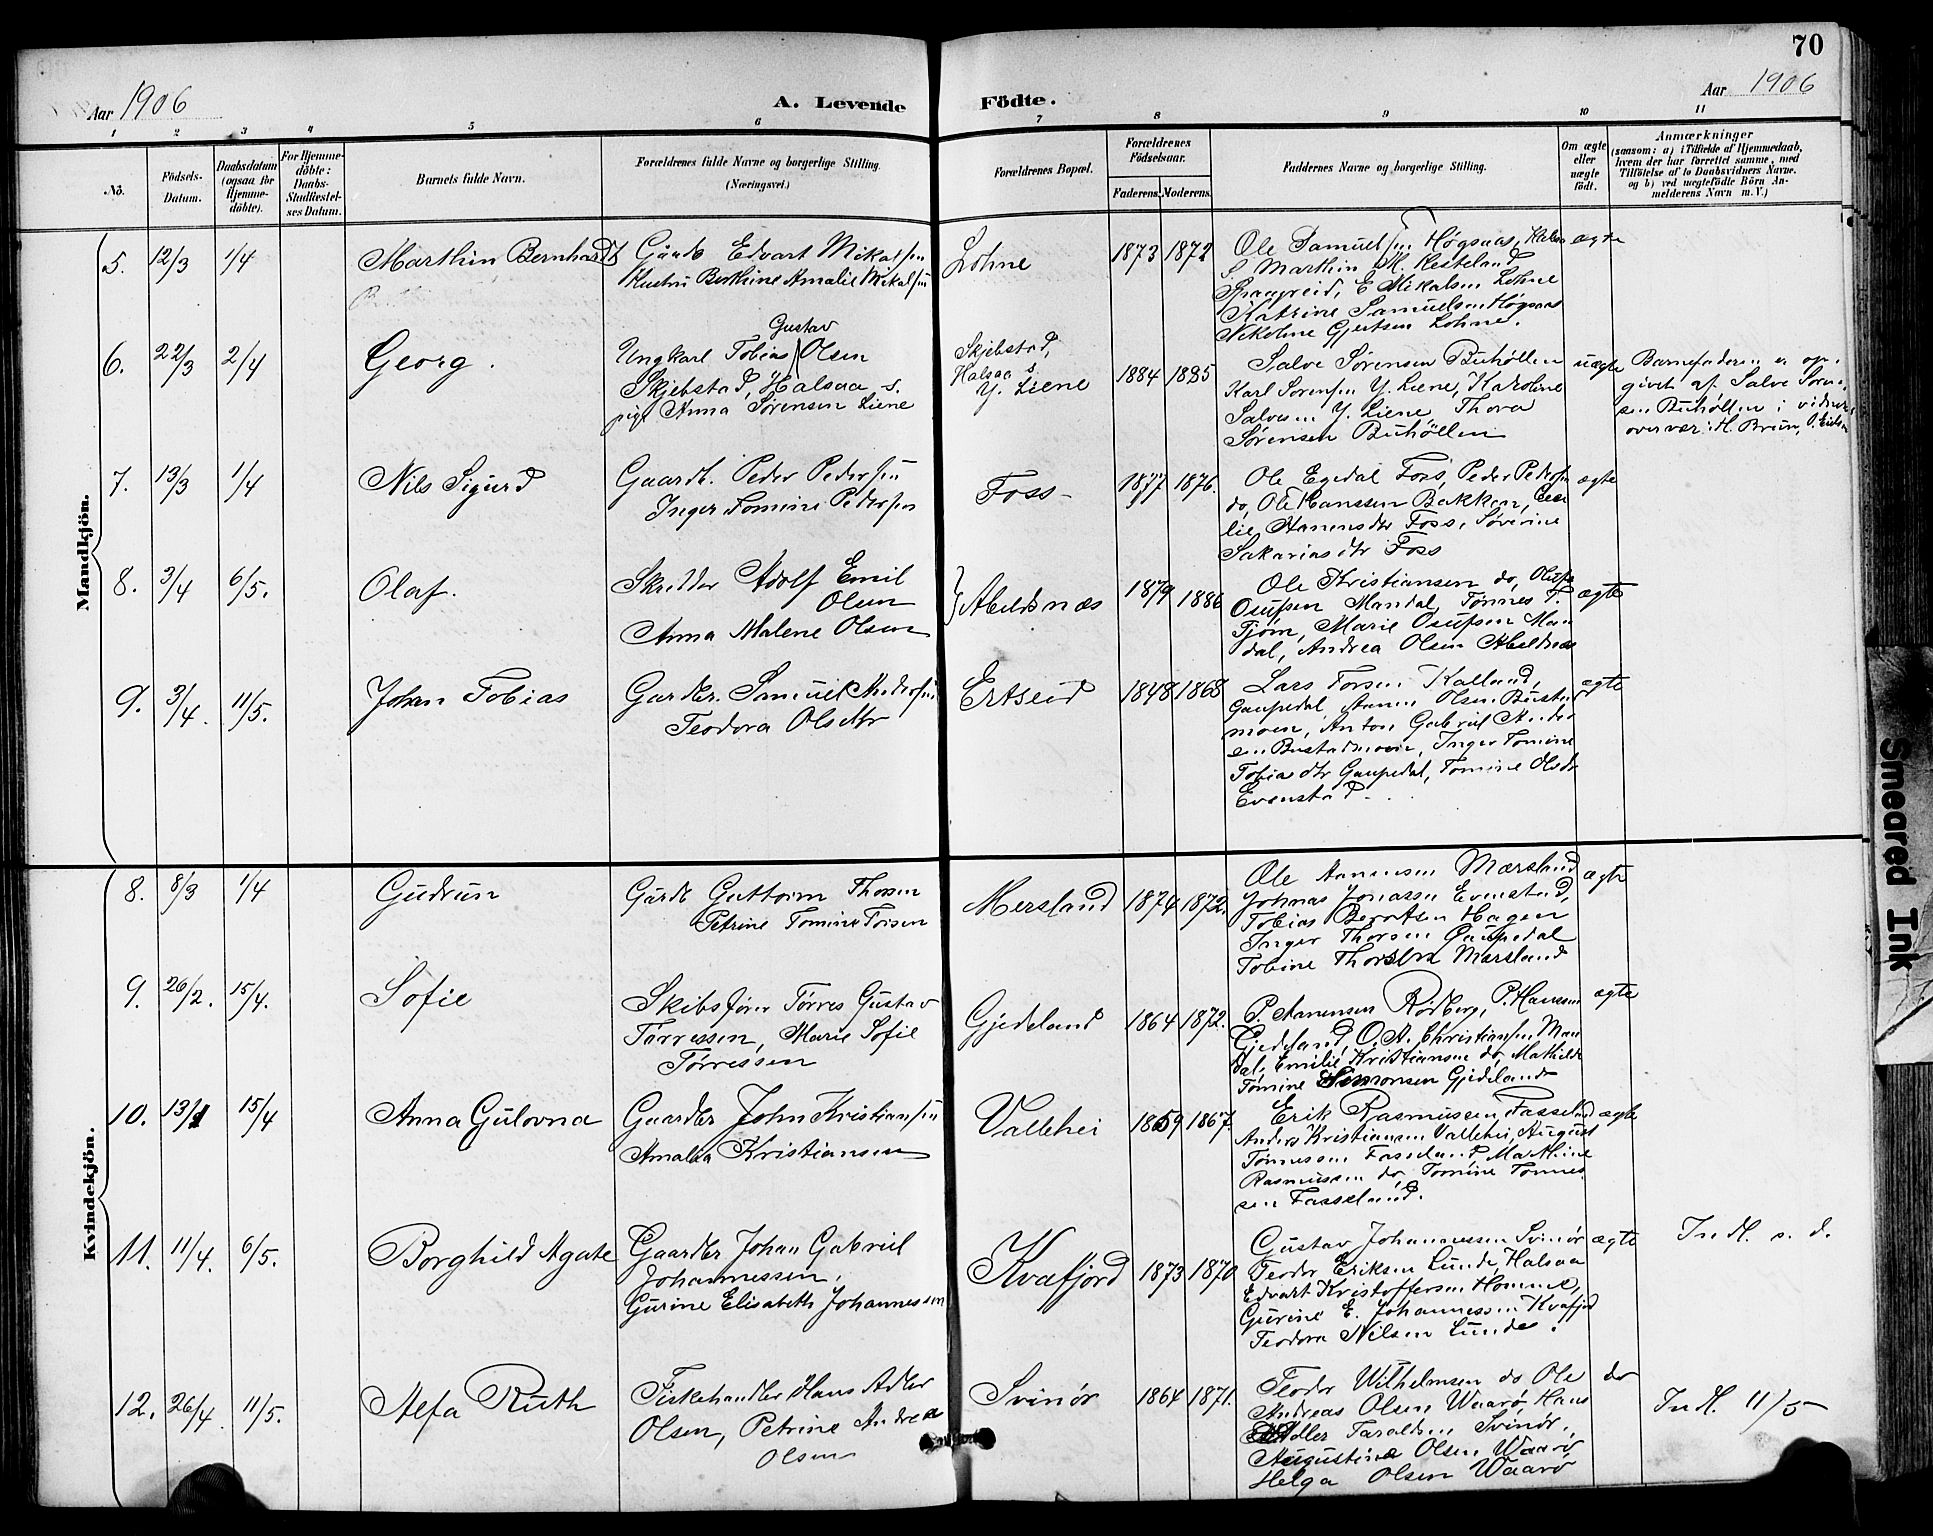 70
Aar 1906
A. Levende Födte.
Aar 1906
1 2 3 4 5 6 7 8 9 10 11
No.
Födsels-Datum.
Daabsdatum (ogsaa for Hjemme-döbte).
For Hjemme-döbte: Daabs-Stadfæstel-ses Datum.
Barnets fulde Navn.
Forældrenes fulde Navne og borgerlige Stilling. (Næringsvei.)
Forældrenes Bopæl.
Forældrenes Födselsaar.
Faderens. Moderens.
Faddernes Navne og borgerlige Stilling.
Om ægte eller uægte födt.
Anmærkninger
(saasom: a) i Tilfælde af Hjemmedaab,
hvem der har forrettet samme, med
Tilföielse af to Daabsvidners Navne.
og b) ved uægtefödte Börn An-
melderens Navn m. V.)
Mandkjön.
5. 12/3 1/4
Marthin Bernhardt
Gaardb Edvart Mikalsen
Hustru Berthine Amalie Mikalsen
Lohne
1873 1872
Ole Samuelsen Høgsaas, Halsaa
S. Marthin M. Hesteland
Spangreid, E Mikalsen Lohne
Katrine Samuelsen Høgsaas
Nikoline Gjertsen Lohne.
ægte
6. 22/3 2/4
Georg.
Gustav
Ungkarl Tobias Olsen
Skjebstad, Halsaa s.
pige Anna Sørensen Liene
Skjebstad,
Halsaa s.
Y. Liene
1884 1885
Salve Sørensen Buhöllen
Karl Sørensen Y. Liene, Karoline
Salvesen Y. Liene, Thora
Sørensen Buhöllen
uægte
Barnefaderen er op-
givet af Salve Søren-
sen Buhöllen i vidners
overvær: H. Bruun,
7. 13/3 1/4
Nils Sigurd
Gaardb. Peder Pedersen
Inger Tomine Pedersen
Foss
1877 1876.
Ole Egedal Foss, Peder Pedersen
do, Ole Hanssen Bakken, Cecilie
Aanensdtr Foss, Søverine
Sakariasdtr Foss
ægte
8. 3/4 6/5.
Olaf.
Skrædder Adolf Emil
Olsen
Anna Malene Olsen
Abelsnæs
1879 1886
Ole Kristiansen do,
Osufsen Mandal, Tønnes T.
Tjøm, Marie Osufsen Man
dal, Andrea Olsen Abelsnæs
ægte
9. 3/4. 11/5.
Johan Tobias
Gardbr. Samuel Andersen
Teodora Olsdtr
Ertseid
1848 1868
Lars Torsen Kalland,
Gaupedal, Aanen Olsen Bustad
moen, Anton Gabriel Ander
sen Bustadmoen, Inger Tomine
Tobiasdtr Gaupedal, Tomine Olsdtr
Evenstad.
ægte
Kvindekjön.
8. 8/3 1/4
Gudrun
Gardb Guttorm Thorsen
Petrine Tomine Torsen
Mersland
1874 1872.
Ole Aanensen Mærsland
Johnas Jonassen Evenstad,
Tobias Berntsen Hagen
Inger Thorsen Gaupedal
Tobine Thorsen Mærsland
ægte
9. 26/2. 15/4.
Sofie
Skibsfører Tørres Gustav
Tørressen, Marie Sofie
Tørressen
Gjedeland
1864 1872.
P. Aanensen Rödberg, P. Hanssen
Gjedeland, O. A. Christiansen Man
dal, Emilie Kristiansen do, Mathilde
Tomine Simonsen Gjedeland
ægte
10. 13/1 15/4
Anna Gulovna
Gaardbr John Kristiansen
Amalia Kristiansen
Vallehei
1859 1867.
Erik Rasmussen, Fasseland
Anders Kristiansen Vallehei, August
Tønnessen Fasseland, Mathine
Rasmussen do, Tomine Tønnes
sen Fasseland.
ægte
11. 11/4. 6/5.
Borghild Agate
Gaardbr Johan Gabriel
Johannessen,
Gurine Elisabeth Johannessen
Kvafjord
1873 1870
Gustav Johannessen Svinör
Teodor Eriksen Lunde, Halsaa
Edvart Kristoffersen Homme,
Gurine E. Johannessen Kvafjord
Teodora Nilsen Lunde.
ægte
Indl. s. d.
12. 26/4. 11/5.
Alfa Ruth
Fiskehandler Hans Adler
Olsen, Petrine Andrea
Olsen
Svinör
1864 1871.
Teodor Wilhelmsen do Ole
Andreas Olsen Waarö, Hans
Adler Taraldsen Svinör,
Augustine Olsen Waarö
Helga Olsen Waarö
do
Indl. 11/5
Smeared Ink